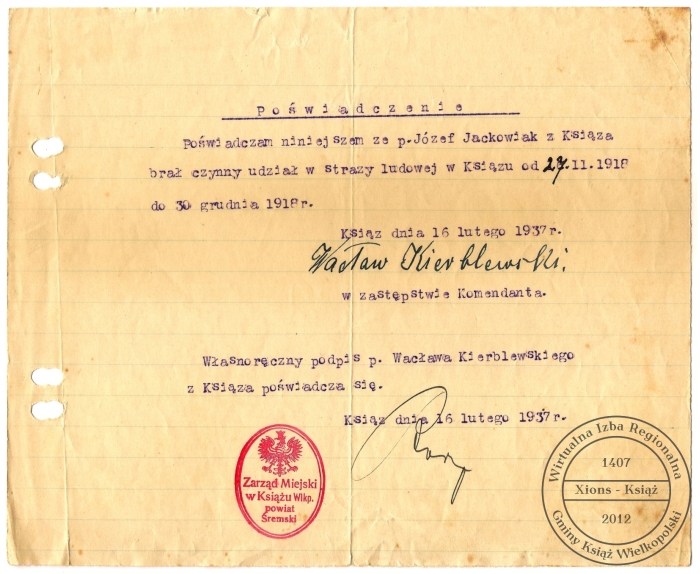 Poświadczenie
Poświadczam niniejszem ze p.Józef Jackowiak z Książa
brał czynny udział w strazy ludowej w Książu od 27.11.1918
do 30 grudnia 1918r.
Książ dnia 16 lutego 1937r.
Wacław Kierblewski.
w zastępstwie Komendanta.
Własnoręczny podpis p. Wacława Kierblewskiego
z Książa poświadcza się.
Książ dnia 16 lutego 1937r.
Zarząd Miejski
w Książu Wlkp.
powiat
Śremski
Wirtualna Izba Regionalna
1407
Xions - Książ
2012
Gminy Książ Wielkopolski